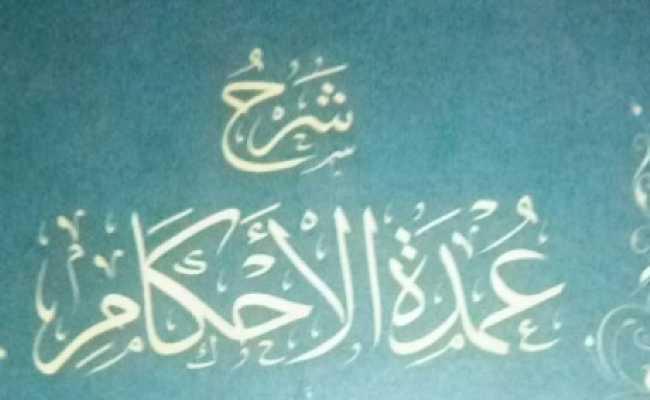 شَرْحُ
عُمْدَةِ الأَحْكَامِ